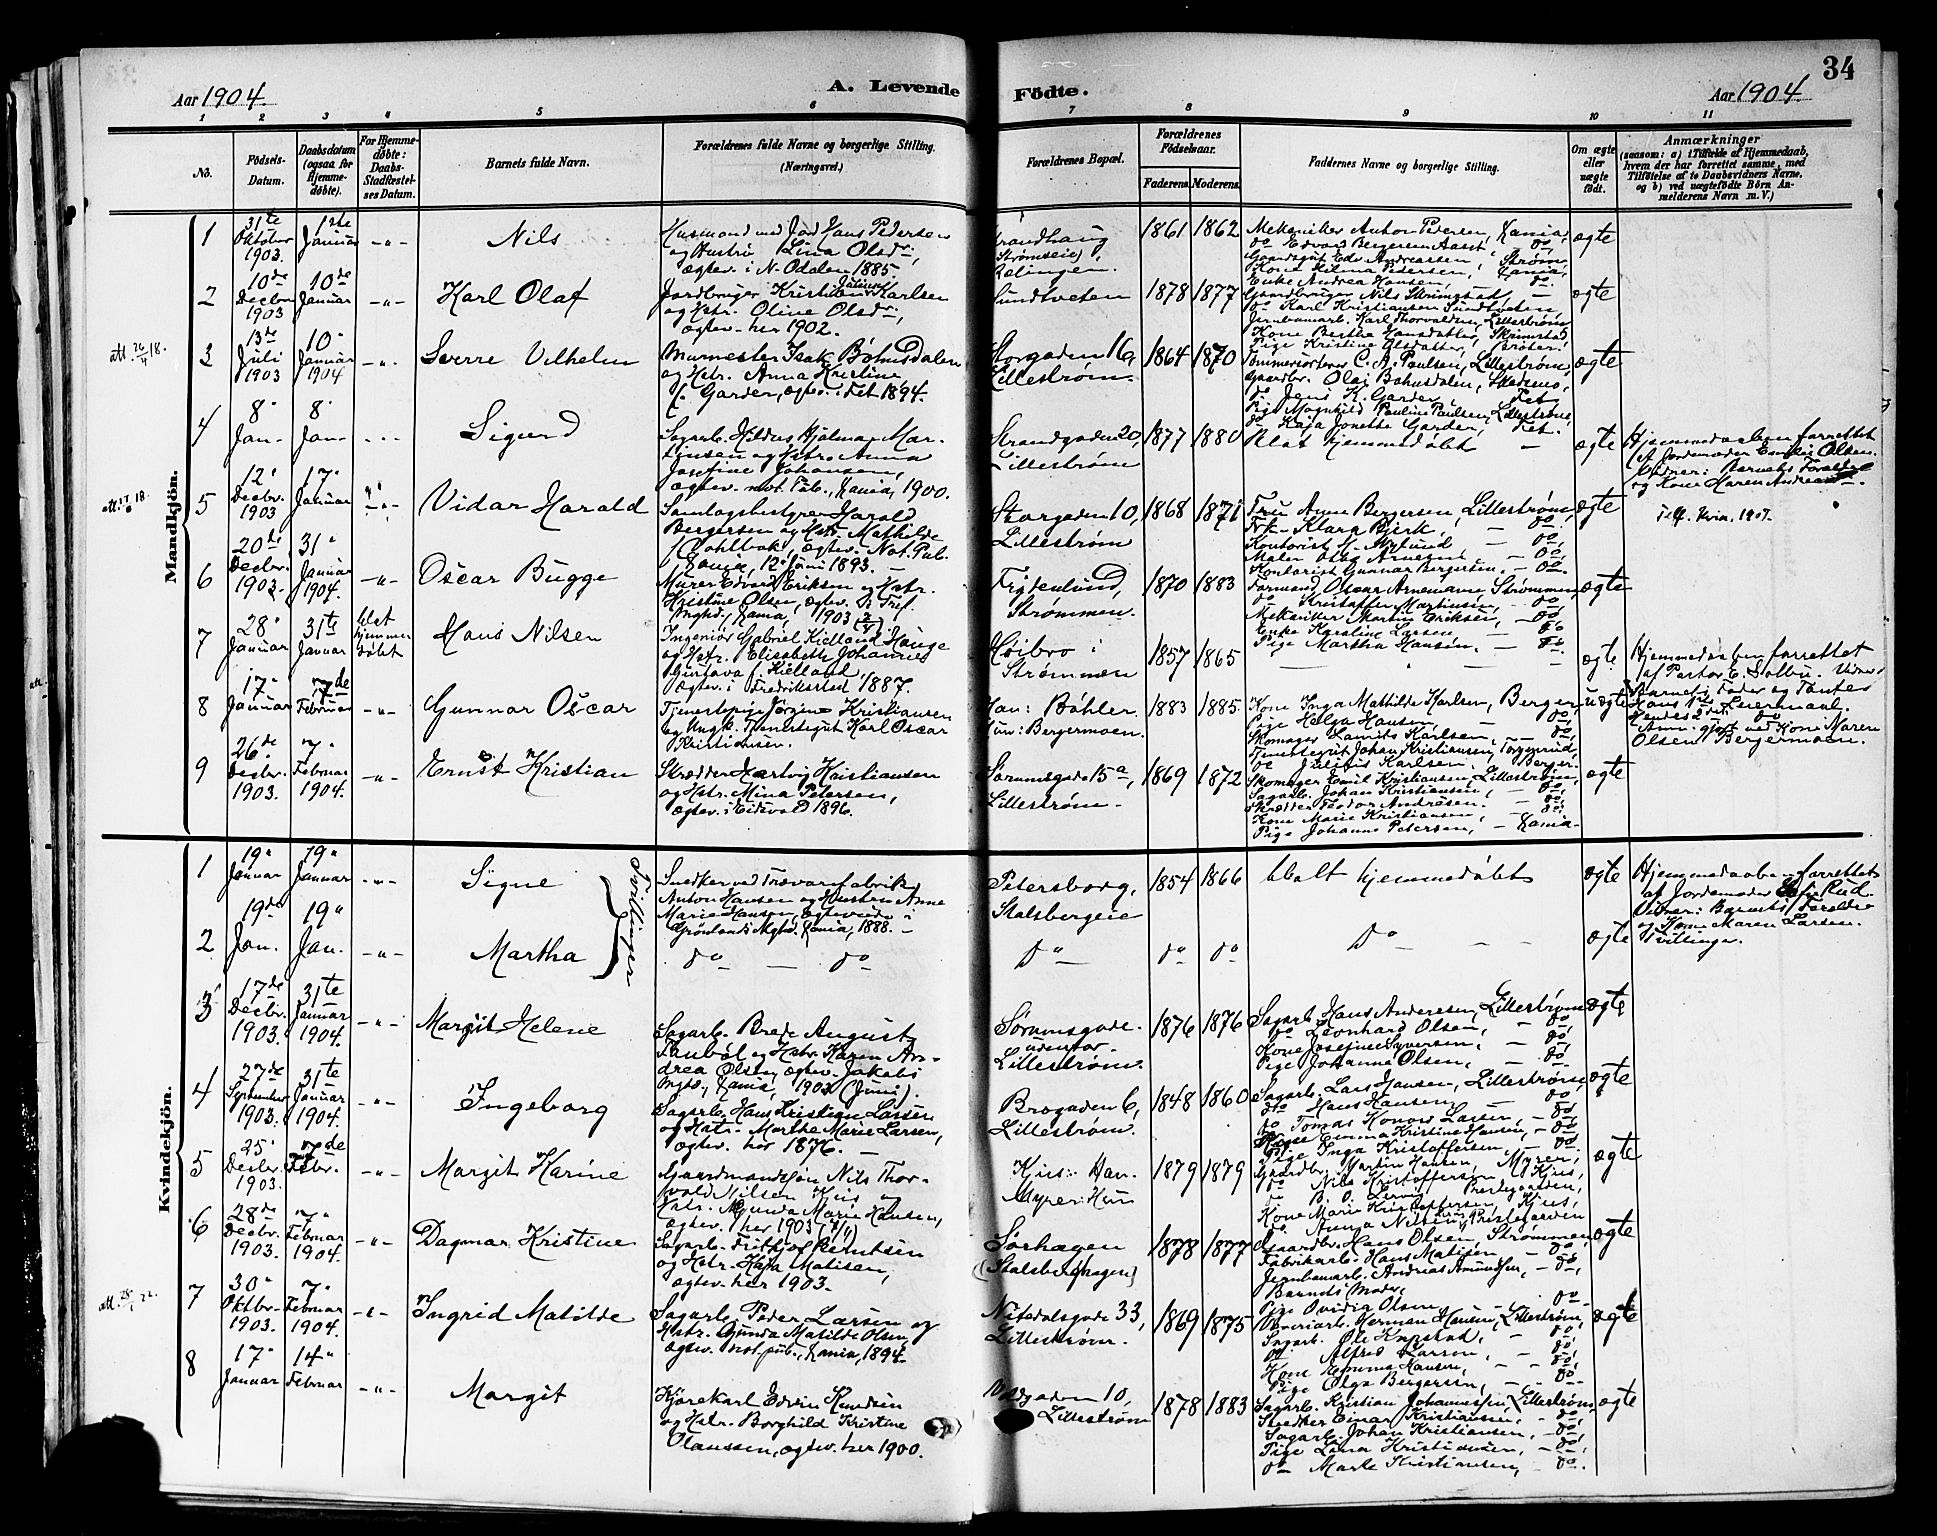 34
Aar 1904.
A. Levende
Födte.
Aar 1904.
1 2 3 4 5 6 7 8 9 10 11
No.
Födsels-Datum.
Daabsdatum (ogsaa for Hjemmedøbte).
For Hjemmedøbte: Daabs-Stadfæstelses Datum.
Barnets fulde Navn.
Forældrenes fulde Navne og borgerlige Stilling. (Næringsvei.)
Forældrenes Bopæl.
Forældrenes Födselsaar.
Faderens Moderens
Faddernes Navne og borgerlige Stilling.
Om ægte eller uægte født.
Anmærkninger
(saasom: a) i Tilfælde af Hjemmedaab,
hvem der har forrettet samme, med
Tilföielse af to Daabsvidners Navne,
og b) ved uægtefödte Börn An-
melderens Navn m. V.)
Mandkjön.
1
31te Oktober 1903.
1ste Januar
Nils
Husmand med Jord Hans Pedersen
og Hustru Lina Olsdr.,
ægtev. i N. Odalen 1885.
Strandhaug
Strømseie,
Rælingen.
1861 1862
Mekaniker Anton Pedersen, Kania,
do Edvard Bergersen Aaset, do,
Gaardsgut Edv. Andreassen, Strøm,
Kone Hilma Pedersen, Kania,
Enke Andrea Hansen, do.
ægte
2
10de Decbr 1903
10de Januar
Karl Olaf
Jordbruger Kristian Karlsen
og Hstr. Oline Olsdr.,
ægtev. her 1902.
Sundtveten
1878 1877
Gaardbruger Nils Skrimstad,
do Karl Kristiansen Sundtveten,
Jernbanearb. Karl Thorvaldsen, Lillestrøm,
Kone Berthe Hansdatter, Skrimstad,
Pige Kristine Olsdatter, Bråter.
ægte
att. 26/4 18.
3
13de Juli 1903
10. Januar 1904
Sverre Vilhelm
Murmester Isak Bøhusdalen
og Hstr. Anna Kristine
f. Garder, ægtev. i Fet 1894.
Storgaden 16,
Lillestrøm.
1864 1870
Tømmersorterer C. A. Paulsen, Lillestrøm,
Gaardbr. Olaj Bøhusdalen, Skedsmo,
do Jens K. Garder Fet,
Pige Magnhild Pauline Paulsen, Lillestrøm,
do Kaja Jonette Garder, Fet.
ægte
4
8. Jan-
8. Jan-
Sigurd
Sagarb. Hildus Hjalmar Mar-
tinsen og Hstr. Anna
Josefine Johansen,
ægtev. not. Pub., Kania, 1900.
Strandgaden 20,
Lillestrøm
1877 1880
Blot hjemmedøbt
ægte
Hjemmedaaben forrettet
af Jordemoder Emilie Olsen.
Vidner: Barnets Forældre
og Kone Maren Andreas
5
12. Decbr. 1903
17. Januar
Vidar Harald
Samlagsbestyrer Harald
Bergersen og Hstr. Mathilde
f. Dahlbak, ægtev. Not. Pub.
Kania, 12. Juni 1893.
Storgaden 10,
Lillestrøm
1868 1871
Fru Anne Bergersen, Lillestrøm,
Frk. Klara Bjerk, do,
Kontorist S. Nylund do,
Maler Otto Arnesen, do.
Kontorist Gunnar Bergersen, do.
ægte
6
20de Decbr. 1903.
31. Januar 1904.
Oscar Bugge
Murer Edvard Eriksen og Hstr.
Kristine Olsen, ægtev. Tref.
Mghd., Kania, 1903
Frydenlund,
Strømmen.
1870 1883
Formand Oscar Arnemann Strømmen,
do Kristoffer Martinsen, do,
Mekaniker Martin Eriksen, do,
Enke Karoline Larsen do,
Pige Martha Hansen, do.
ægte
7
28. Januar
31te Januar
blot hjemmedøbt
Hans Nilsen
Ingeniør Gabriel Kielland Hauge
og Hstr. Elisabeth Johanne
Gustava f. Kielland,
ægtev. i Fredriksstad 1887.
Høibro i
Strømmen
1857 1865
ægte.
Hjemmedaaben forrettet
af Pastor E. Solbu. Vidner:
Barnets Fader og Tantes
8
17. Januar
7de Februar
Gunnar Oscar
Tjenestepige Jørgine Kristiansen
og Ungk. Tjenestegut Karl Oscar
Kristiansen.
Han: Bøhler,
Hun: Bergermoen.
1883 1885
Kone Inga Mathilde Karlsen, Berger,
Pige Helga Hansen do,
Skomager Laurits Karlsen, do,
Tjenestegut Johan Kristiansen, Torgerrud,
do Julius Karlsen. Berger.
uægte
Hans 1ste Leiermaal.
Hendes 2det do
Anm. gjort ved Kone Maren
Olsen Bergermoen.
9
26de Decbr. 1903.
7. Februar 1904.
Ernst Kristian
Skrædder Hartvig Kristiansen
og Hstr. Mina Petersen,
ægtev. i Eidsvold 1896.
Sørumsgade 15a,
Lillestrøm.
1869 1872
Skomager Emil Kristiansen, Lillestrøm,
Sagarb. Johan Kristiansen, do,
Skrædder Teodor Andresen. do,
Kone Marie Kristiansen, do.
Pige Johanne Petersen, Kania.
ægte
Kvindekjön.
1
19. Januar
19. Januar
Signe
Tvillinger
Snedker ved Trævarefabrik
Anton Hansen og Hustru Anne
Marie Hansen, ægteviede i
Grønlands Mghd. Kania, 1888.
Petersborg,
Stalsbergeie
1854 1866
blot hjemmedøbt
ægte
Hjemmedaaben forrettet
af Jordemoder Sofie Rud
Vidner: Barnets Forældre
og Kone Maren Larsen.
Tvillinger.
2
19de Jan.
19. Jan.
Martha
do do
do
do do
do
ægte
3
17de Decbr. 1903.
31te Januar 1904.
Margit Helene
Sagarb. Brede August
Tanbøl og Hstr. Karen An-
drea Olsen, ægtev. Jakobs
Mghd., Kania, 1903 (Juni).
Sørumsgade.
udenfor
Lillestrøm.
1876 1876
Sagarb. Hans Andersen, Lillestrøm,
do Leonhard Olsen, do,
Kone Josefine Syversen, do,
Pige Johanne Olsen, do
ægte
4
27de September 1903.
31te Januar 1904.
Ingeborg
Sagarb. Hans Kristian Larsen
og Hstr. Marthe Marie Larsen,
ægtev. her 1876.
Brogaden 6,
Lillestrøm.
1848 1860
Sagarb. Lars Hansen, Lillestrøm,
do Hans Hansen, do,
do Tomas Konow Larsen do,
Kone Emma Kristine Hansen, do
Pige Inga Kristoffersen, do
ægte
5
25. Decbr. 1903.
7de Febr.
Margit Karine
Gaardmandssøn Nils Thor-
vald Nilsen Kjus og
Hstr. Gunda Marie Hansen,
ægtev. her 1903
Kjus: Han
Myrer: Hun
1879 1879
Gaardbr. Martin Hansen, Myrer,
do Nils Kristoffersen Kjus,
Kone Marie Kristoffersen, Kjus,
do Anna Nilsen, Prestegaarden
ægte
6
28de Decbr. 1903.
7. Februar 1904.
Dagmar Kristine
Sagarb. Fritjof Berntsen
og Hstr. Kaja Matisen,
ægtev. her 1903.
Sørhagen
(Stalsberghagen)
1878 1877
Gaardbr. Hans Olsen, Strømmen,
Fabrikarb. Hans Matisen do,
Jernbanearb. Andreas Amundsen, do,
Barnets Moder,
Pige Ovidia Olsen do
ægte
7
30. Oktbr. 1903.
7. Februar 1904.
Ingrid Matilde
Sagarb. Peder Larsen og
Hstr. Gunda Matilde Olsen,
ægtev. not. pub., Kania, 1894.
Nitedalsgade 33,
Lillestrøm.
1869 1875
Herman Hansen, Lillestrøm,
Sagarb. Ole Kapstad, do,
do Alfred Larsen, do,
Kone Emma Hansen, do,
Pige Olga Bergersen, do
ægte
8
17. Januar
14. Februar
Margit
Kjørekarl Edvin Knudsen
og Hstr. Borghild Kristine
Olaussen, ægtev. her 1900.
Voldgaden 10,
Lillestrøm
1878 1883
Sagarb. Kristian Johannessen, Lillestrøm,
Snedker Einar Kristiansen, do,
Sagarb. Johan Kristiansen, do,
Pige Lina Kristiansen, do,
do Marte Kristiansen, do.
ægte